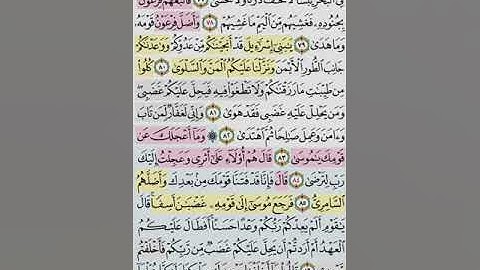 فِي الْبَحْرِ يَبَسًا لَّا تَخَٰفُ دَرَكًا وَلَا تَخْشَىٰ ٧٧ فَأَتْبَعَهُمْ فِرْعَوْنُ
بِجُنُودِهِۦ فَغَشِيَهُم مِّنَ ٱلْيَمِّ مَا غَشِيَهُمْ ٧٨ وَأَضَلَّ فِرْعَوْنُ قَوْمَهُۥ
وَمَا هَدَىٰ ٧٩ يَٰبَنِىٓ إِسْرَٰٓءِيلَ قَدْ أَنجَيْنَٰكُم مِّنْ عَدُوِّكُمْ وَوَٰعَدْنَٰكُمْ
جَانِبَ ٱلطُّورِ ٱلْأَيْمَنَ وَنَزَّلْنَا عَلَيْكُمُ ٱلْمَنَّ وَٱلسَّلْوَىٰ ٨٠ كُلُوا۟
مِن طَيِّبَٰتِ مَا رَزَقْنَٰكُمْ وَلَا تَطْغَوْا۟ فِيهِ فَيَحِلَّ عَلَيْكُمْ غَضَبِى
وَمَن يَحْلِلْ عَلَيْهِ غَضَبِى فَقَدْ هَوَىٰ ٨١ وَإِنِّى لَغَفَّارٌ لِّمَن تَابَ
وَءَامَنَ وَعَمِلَ صَٰلِحًا ثُمَّ ٱهْتَدَىٰ ٨٢ ۞ وَمَآ أَعْجَلَكَ عَن
قَوْمِكَ يَٰمُوسَىٰ ٨٣ قَالَ هُمْ أُو۟لَآءِ عَلَىٰٓ أَثَرِى وَعَجِلْتُ إِلَيْكَ
رَبِّ لِتَرْضَىٰ ٨٤ قَالَ فَإِنَّا قَدْ فَتَنَّا قَوْمَكَ مِنۢ بَعْدِكَ وَأَضَلَّهُمُ
ٱلسَّامِرِىُّ ٨٥ فَرَجَعَ مُوسَىٰٓ إِلَىٰ قَوْمِهِۦ غَضْبَٰنَ أَسِفًا قَالَ
يَٰقَوْمِ أَلَمْ يَعِدْكُمْ رَبُّكُمْ وَعْدًا حَسَنًا أَفَطَالَ عَلَيْكُمُ
ٱلْعَهْدُ أَمْ أَرَدتُّمْ أَن يَحِلَّ عَلَيْكُمْ غَضَبٌ مِّن رَّبِّكُمْ فَأَخْلَفْتُم